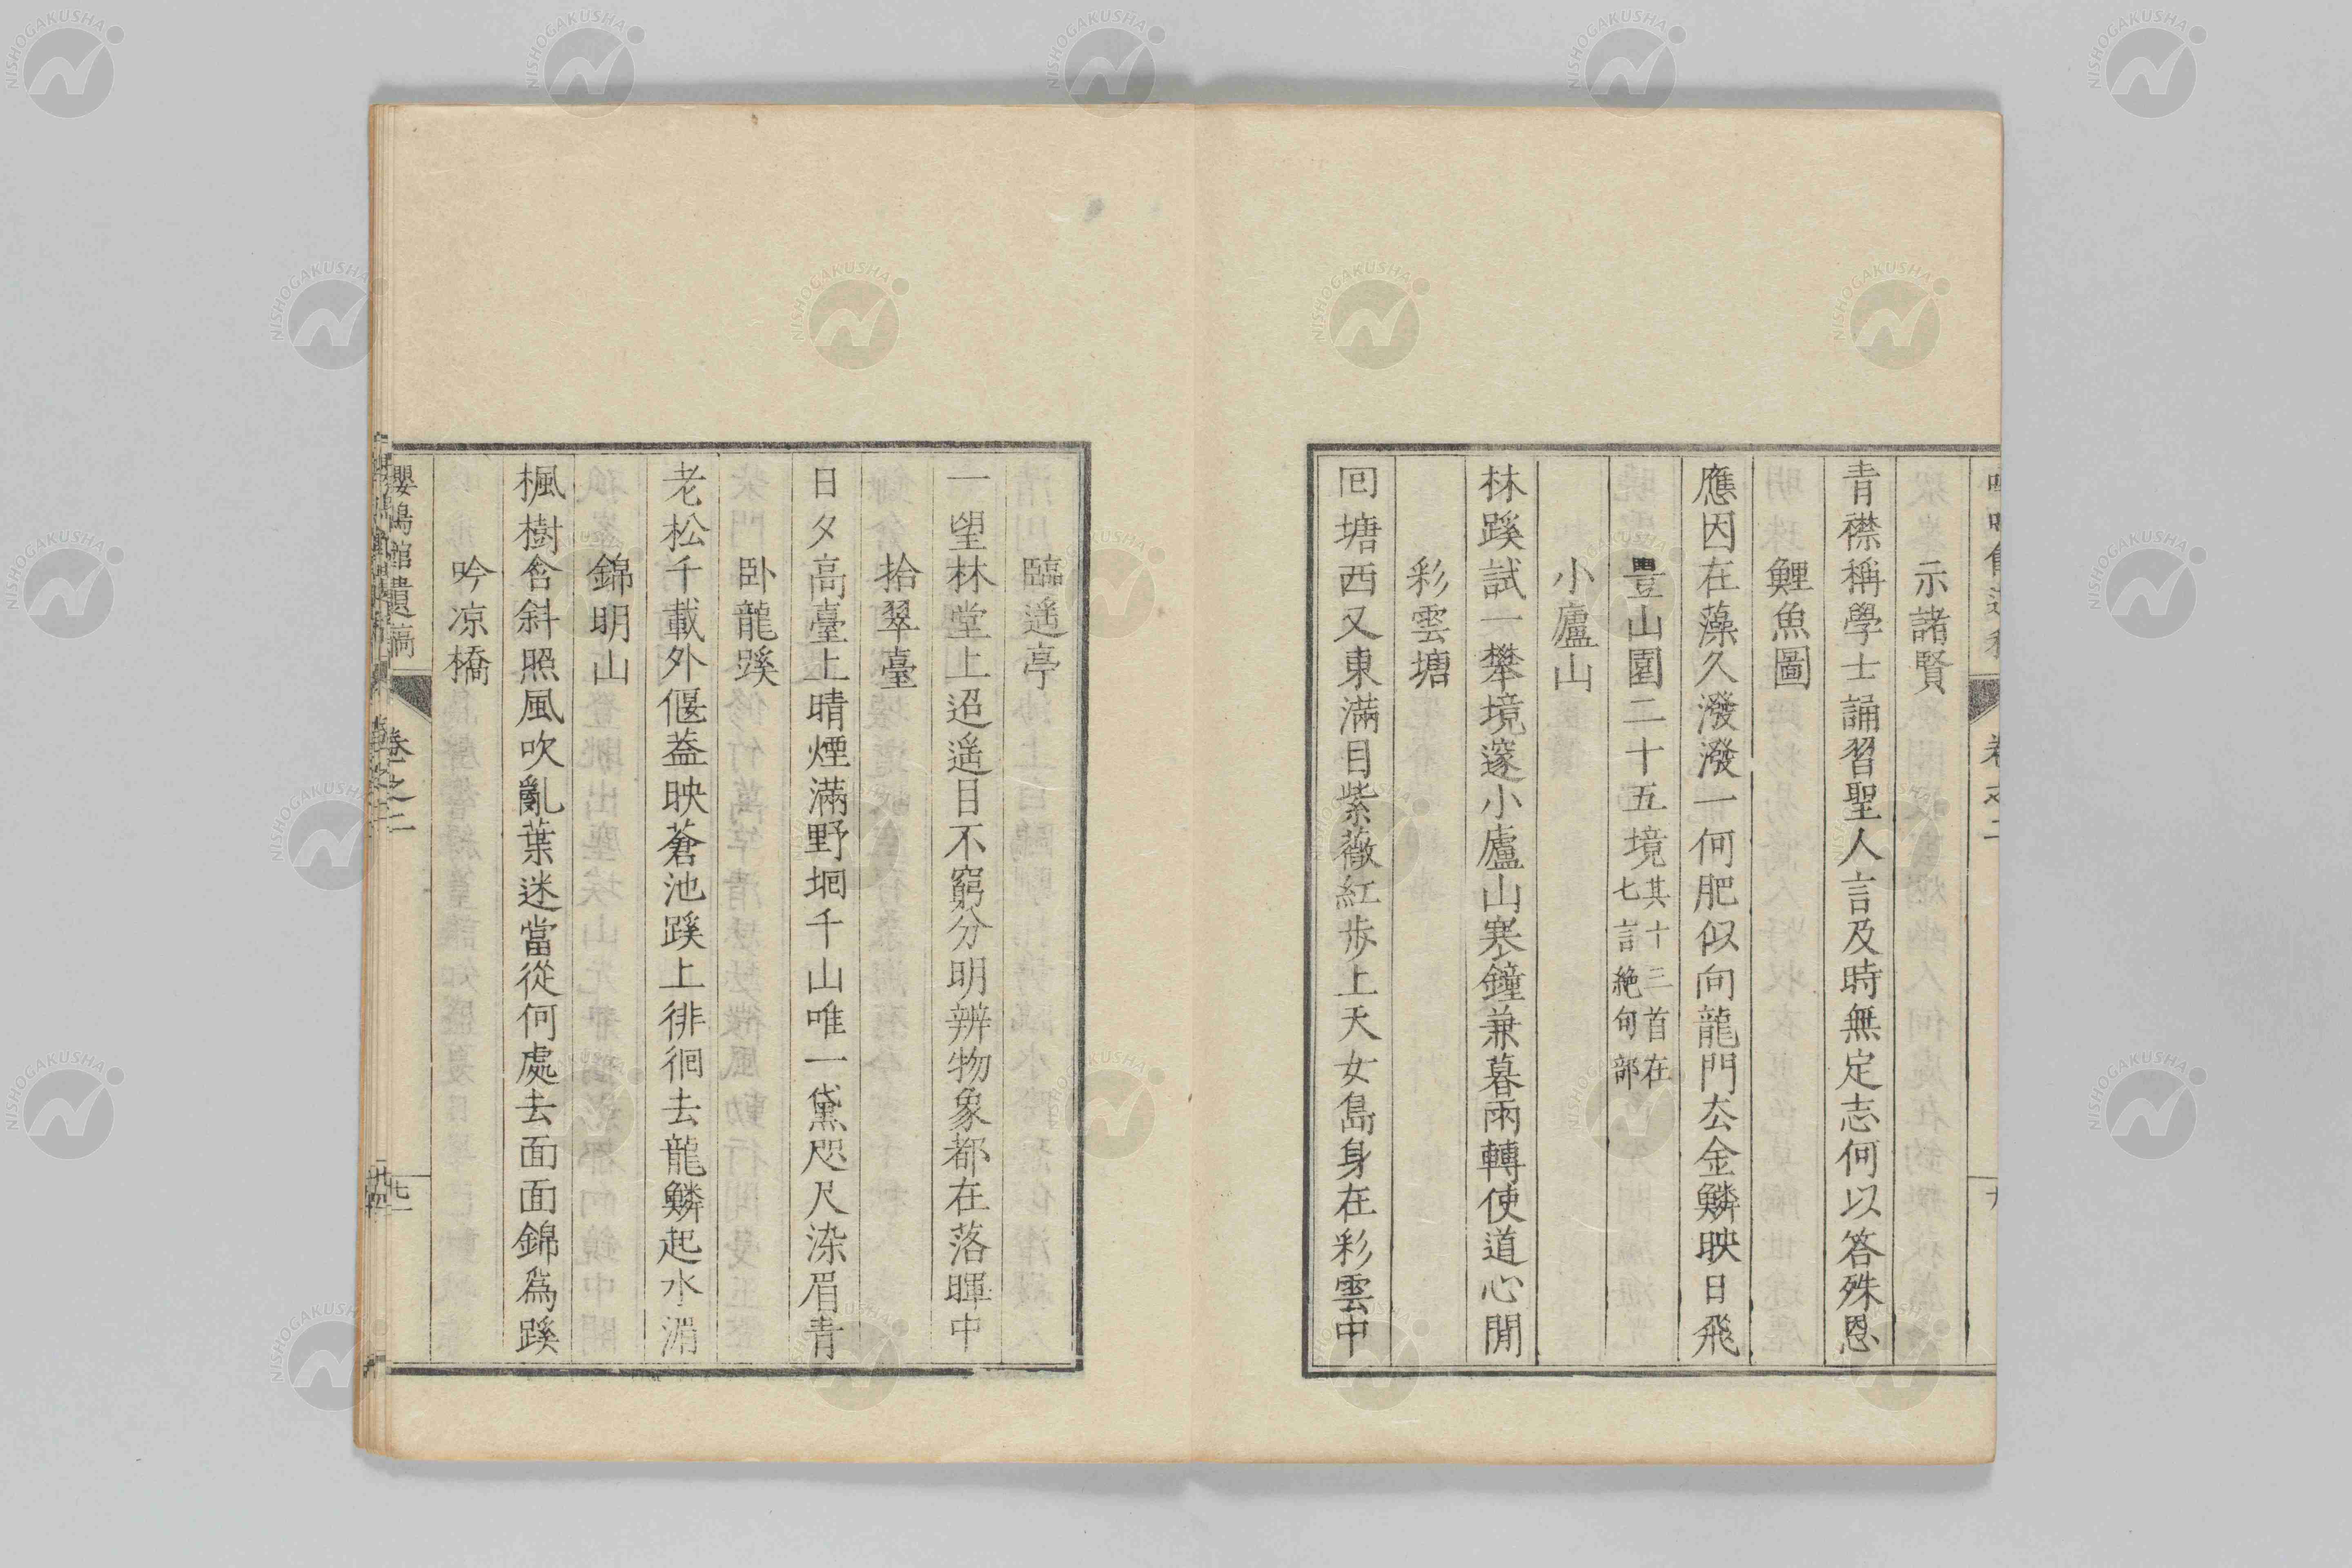 示諸賢
青襟稱學士誦習聖人言及時無定志何以答殊恩
鯉魚圖
應因在藻久潑潑一何肥似向龍門去金鱗映日飛
豊山園二十五境其十三首在
七言絶句部
小廬山
林蹊試一攀境邃小廬山寒鐘兼暮雨轉使道心閒
彩雲塘
回塘西又東滿目紫薇紅歩上天女島身在彩雲中
臨遥亭
一望林堂上迢遥目不窮分明辨物象都在落暉中
拾翠臺
日夕高臺上晴煙滿野坰千山唯一黛咫尺染眉青
卧龍蹊
老松千載外偃葢映蒼池蹊上徘徊去龍鱗起水湄
錦明山
楓樹含斜照風吹亂葉迷當從何處去面面錦爲蹊
吟凉橋
嚶鳴館遺稿
卷之二
NISHOGAKUSHA